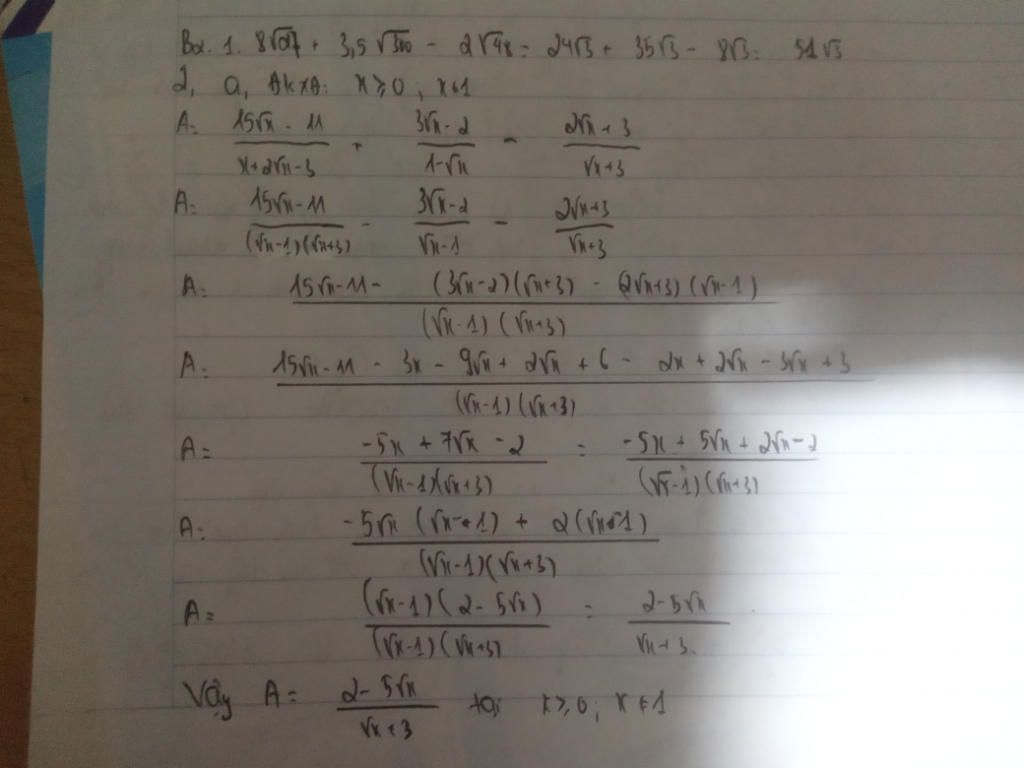 Bài 1. 8√27 + 3,5√300 - 2√48 = 24√3 + 35√3 - 8√3 = 51√3
2, a, ĐKXĐ: x ≥ 0; x ≠ 1
A = (15√x - 11)/(x + 2√x - 3) + (3√x - 2)/(1 - √x) - (2√x + 3)/(√x + 3)
A = (15√x - 11)/((√x - 1)(√x + 3)) - (3√x - 2)/(√x - 1) - (2√x + 3)/(√x + 3)
A = (15√x - 11 - (3√x - 2)(√x + 3) - (2√x + 3)(√x - 1))/((√x - 1)(√x + 3))
A = (15√x - 11 - 3x - 9√x + 2√x + 6 - 2x + 2√x - 3√x + 3)/((√x - 1)(√x + 3))
A = (-5x + 7√x - 2)/((√x - 1)(√x + 3)) = (-5x + 5√x + 2√x - 2)/((√x - 1)(√x + 3))
A = (-5√x (√x - 1) + 2(√x - 1))/((√x - 1)(√x + 3))
A = ((√x - 1)(2 - 5√x))/((√x - 1)(√x + 3)) = (2 - 5√x)/(√x + 3)
Vậy A = (2 - 5√x)/(√x + 3) tại x ≥ 0; x ≠ 1